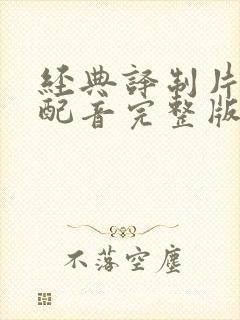 經典譯制片
配音完整版
不落空塵